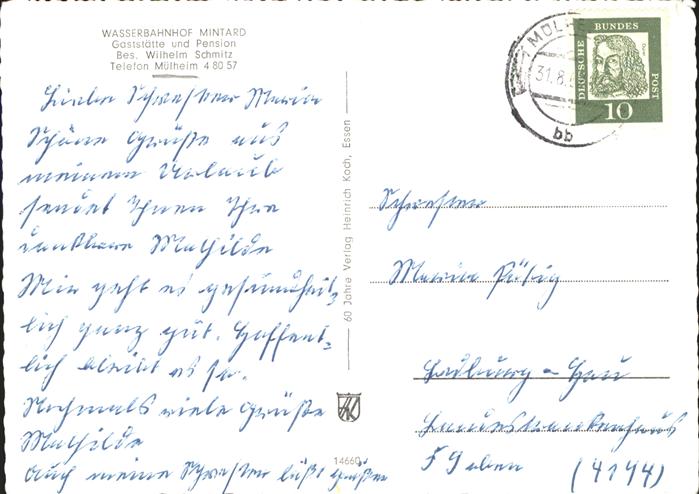 WASSERBAHNHOF MINTARD
Gaststätte und Pension
Bes. Wilhelm Schmitz
Telefon Mülheim 4 80 57
Liebe Schwester Maria
Schöne Grüße aus
meinem Urlaub
sendet Ihnen Ihre
dankbare Mathilde
Mir geht es gesundheit-
lich ganz gut. Hoffent-
lich bleibt es so.
Nochmals viele Grüße
Mathilde
Auch meine Schwester läßt grüßen
60 Jahre Verlag Heinrich Koch, Essen
14660
MÜLHEIM
31.8.
bb
DEUTSCHE BUNDESPOST
Dürer
10
Schwester
Maria
Bedburg - Hau
Landeskrankenhaus
(4194)